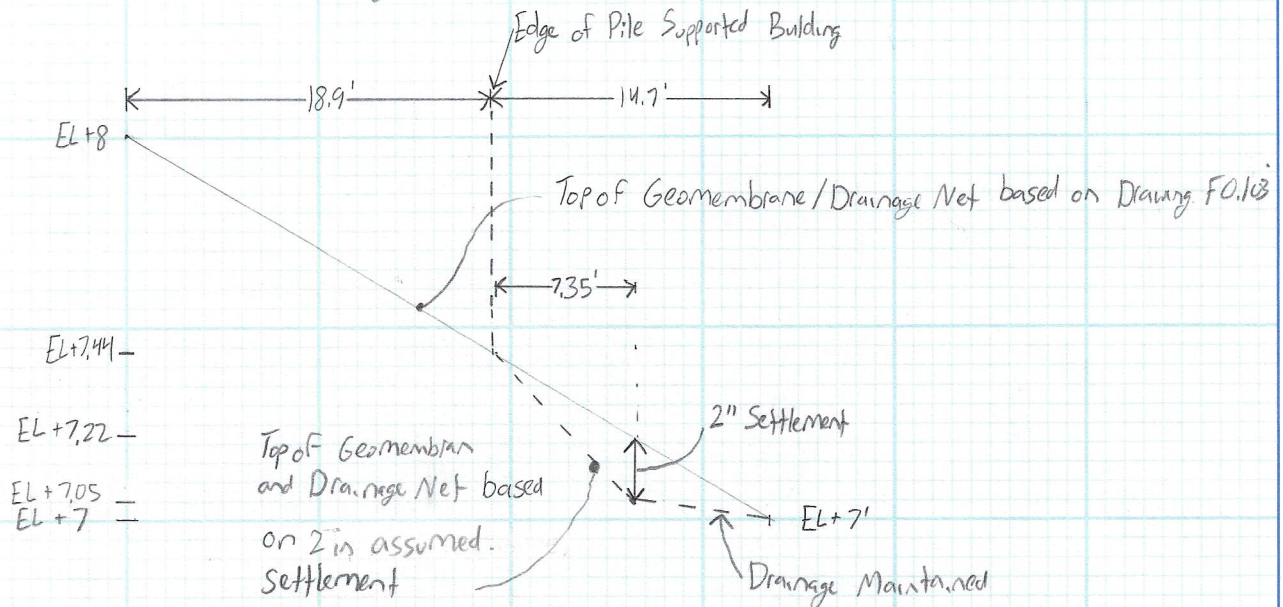 Edge of Pile Supported Building
18.9'
14.7'
EL+8
Top of Geomembrane/Drainage Net based on Drawing F0.103
7.35'
EL+7.44
2" Settlement
EL+7.22
Top of Geomembran
and Drainage Net based
on 2 in assumed.
Settlement
EL+7.05
EL+7
EL+7'
Drainage Maintained